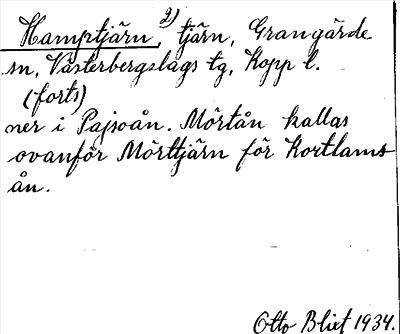 Hamptjärn, 2) tjärn, Grangärde
sn, Västerbergslags tg, Kopp l.
(forts)
ner i Pajsoån. Mörtån kallas
ovanför Mörttjärn för Kortlams-
ån.
Otto Blixt 1934.